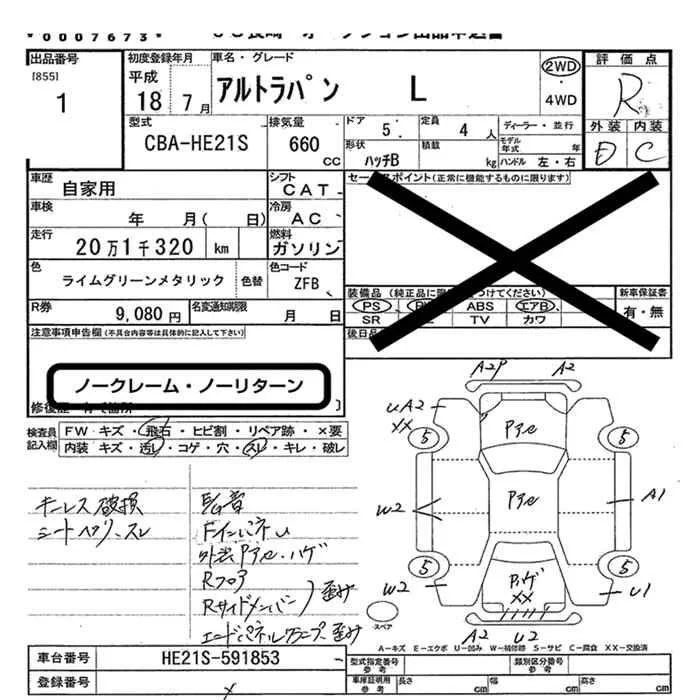 0007673
出品番号
[855]
1
初度登録年月
平成
18 7月
車名・グレード
アルトラパン L
2WD
・
4WD
評価点
R
外装 内装
D C
型式
CBA-HE21S
排気量
660
CC
ドア
5
定員
4 人
ディーラー・並行
モデル
年式 年
形状
ハッチB
積載
kg
ハンドル 左・右
車歴
自家用
シフト
CAT
車検
年 月( 日)
冷房
AC
走行
20万1千320 km
燃料
ガソリン
色
ライムグリーンメタリック
色替
色コード
ZFB
R券
9,080円
名変通知期限
月 日
セールスポイント(正常に機能するものに限ります)
装備品
PS ABS エアB
SR TV カワ
新車保証書
有・無
後日品
注意事項申告欄(不具合内容等は具体的に記入して下さい)
ノークレーム・ノーリターン
検査員
記入欄
FW キズ・飛石・ヒビ割・リペア跡・×要
内装 キズ・汚レ・コゲ・穴・スレ・キレ・破レ
キーレス破損
シートヘタリ、スレ
Fインパネ U
外装Pアセ・ハゲ
Rフロア
Rサイドメンバー
歪み
エンドパネル
歪み
A2P A2
UA2
XX
5 5
Pアセ
W2
Pアセ
A1
5 5
W2
Pハゲ
XX
U1
A2 U2
スペア
A-キズ E-エクボ U-凹み W-補修跡 S-サビ C-腐食 XX-交換済
車台番号
HE21S-591853
登録番号
型式指定番号
参考
類別区分番号
参考
車庫証明用
参考
長さ cm
幅 cm
高さ cm